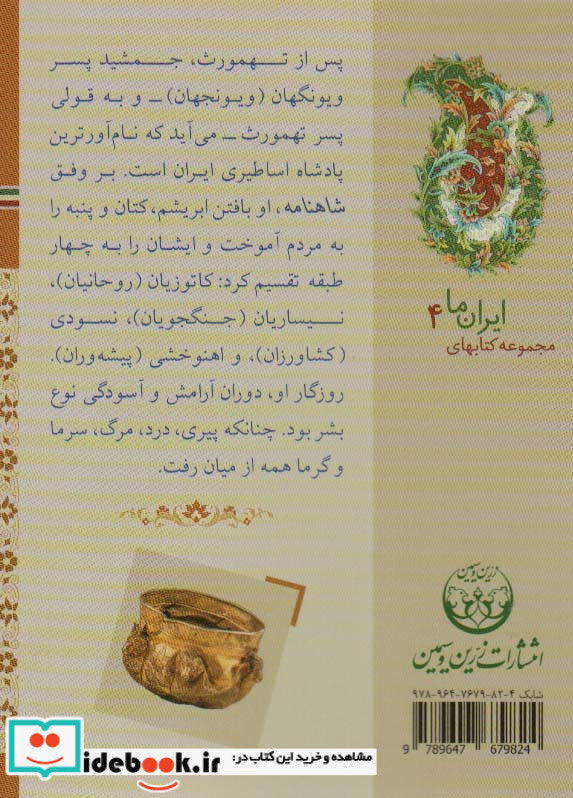 پس از تهمورث، جمشید پسر
ویونگهان (ویونجهان) ــ و به قولی
پسر تهمورث ــ می‌آید که نام‌آورترین
پادشاه اساطیری ایران است. بر وفق
شاهنامه، او بافتن ابریشم، کتان و پنبه را
به مردم آموخت و ایشان را به چهار
طبقه تقسیم کرد: کاتوزیان (روحانیان)،
نیساریان (جنگجویان)، نسودی
(کشاورزان)، و اهنوخشی (پیشه‌وران).
روزگار او، دوران آرامش و آسودگی نوع
بشر بود. چنانکه پیری، درد، مرگ، سرما
و گرما همه از میان رفت.
ایران ما ۴
مجموعه کتابهای
زرین و سیمین
انتشارات زرین و سیمین
شابک ۴-۸۲-۷۶۷۹-۹۶۴-۹۷۸
9 789647 679824
idebook.ir
مشاهده و خرید این کتاب در: